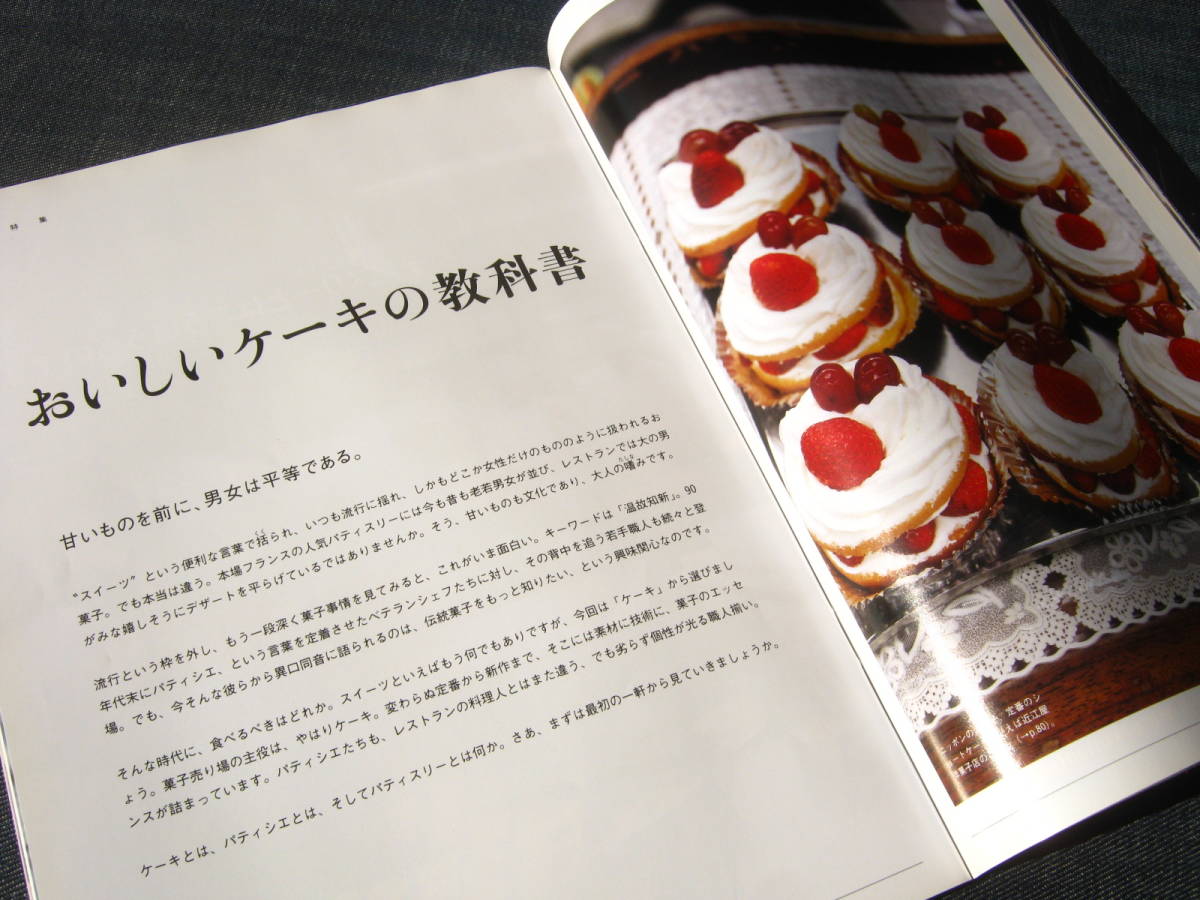 特集
おいしいケーキの教科書
甘いものを前に、男女は平等である。
“スイーツ”という便利な言葉で括られ、いつも流行に揺れ、しかもどこか女性だけのもののように扱われるお
菓子。でも本当は違う。本場フランスの人気パティスリーには今も昔も老若男女が並び、レストランでは大の男
がみな嬉しそうにデザートを平らげているではありませんか。そう、甘いものも文化であり、大人の嗜みです。
流行という枠を外し、もう一段深く菓子事情を見てみると、これがいま面白い。キーワードは「温故知新」。90
年代末にパティシエ、という言葉を定着させたベテランシェフたちに対し、その背中を追う若手職人も続々と登
場。でも、今そんな彼らから異口同音に語られるのは、伝統菓子をもっと知りたい、という興味関心なのです。
そんな時代に、食べるべきはどれか。スイーツといえばもう何でもありですが、今回は「ケーキ」から選びまし
ょう。菓子売り場の主役は、やはりケーキ。変わらぬ定番から新作まで、そこには素材に技術に、菓子のエッセ
ンスが詰まっています。パティシエたちも、レストランの料理人とはまた違う、でも劣らず個性が光る職人揃い。
ケーキとは、パティシエとは、そしてパティスリーとは何か。さあ、まずは最初の一軒から見ていきましょうか。
ニッポンの 定番のシ
ョートケーキ えば近江屋
洋菓子店の (→p.80)。